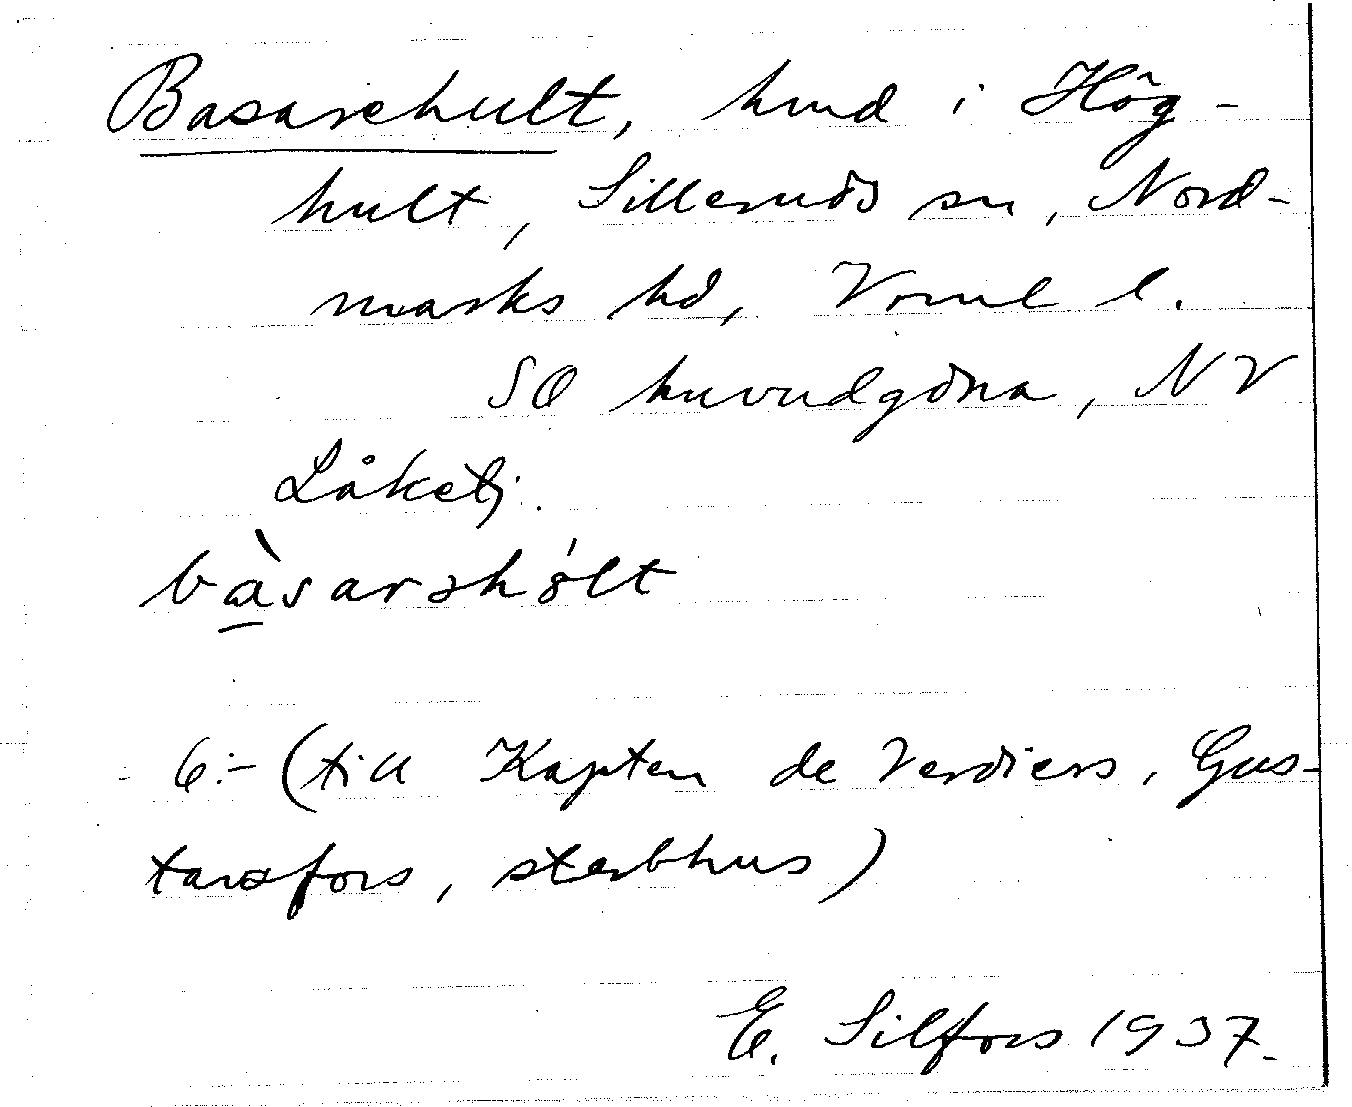 Basarehult, hmd i Hög-
hult, Silleruds sn, Nord-
marks hd, Verml l.
SO huvudgdna, NV
Låketj.
bàsarəhólt
6:- (till Kapten de Verdiers, Gus-
tavsfors, sterbhus)
E. Silfors 1937.